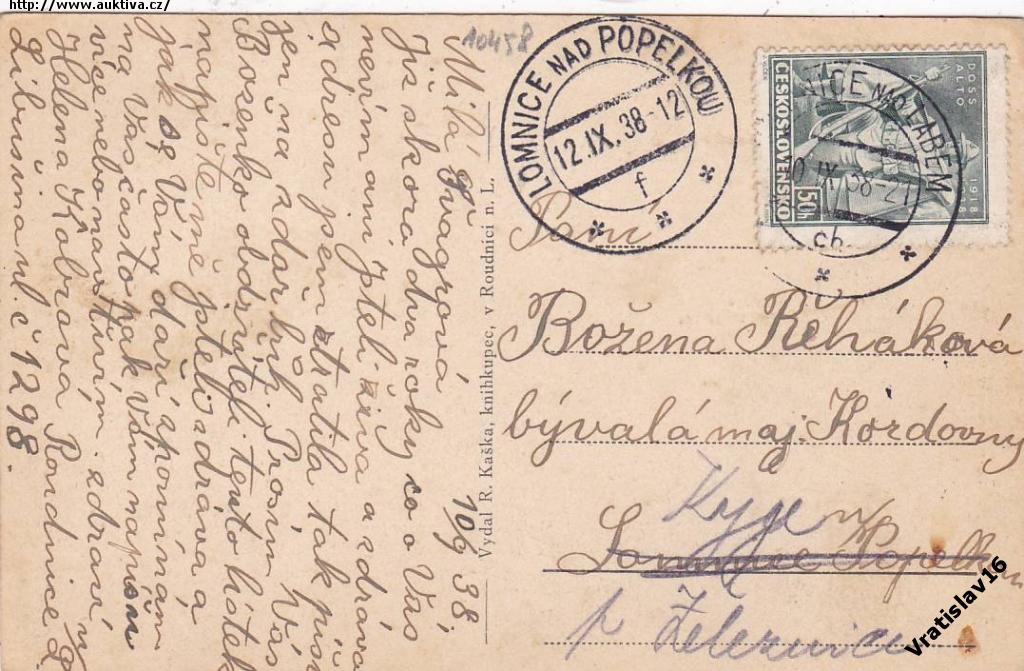 http://www.auktiva.cz/
10458
Milá Švagrová 10/9 38
Již skora dva roky co o Vás
nevím ani jsteli živa a zdráva
adresu jsem ztratila tak píši
jen na zdař bůh. Prosím Vás
Boženko obdržíteli tento lístek
napište mě jsteli zdráva a
jak se Vám daří zpomínám
na Vás často pak Vám napíšu
více nebo navštívím. zdraví
Helena Kobrová Roudnice n/L
Libušina ul. č 1298.
Vydal R. Kaška, knihkupec, v Roudnici n. L.
LOMNICE NAD POPELKOU
12.IX.38-12
f
ČESKOSLOVENSKO
DOSS ALTO
1918
50h
NICE NAD LABEM
10.IX.38-21
ch
Paní
Božena Řeháková
bývalá maj. Kordovny
Kyje
Lomnice n/Popelkou
p Železnice
Vratislav16